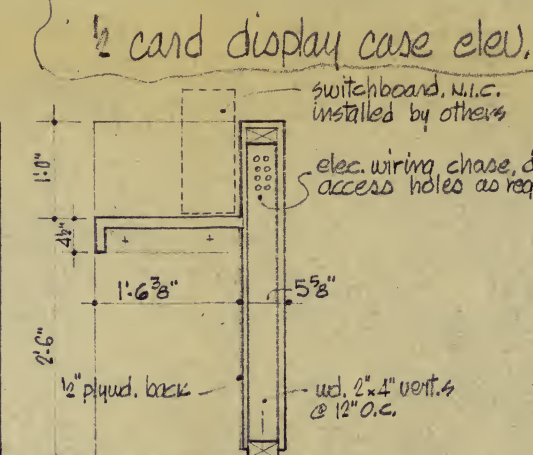 ½ card display case elev.
switchboard, N.I.C.
installed by others
elec. wiring chase,
access holes as
1'-0"
4½"
1'-6⅜"
5⅝"
2'-6"
½" plywd. back
wd. 2"x4" vert.s
@ 12" O.C.